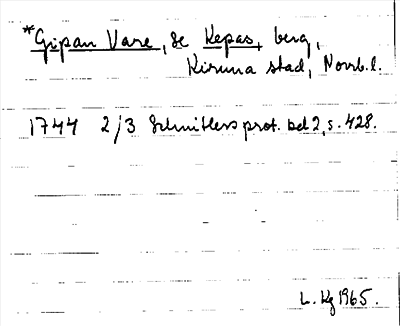 *Gipan Vare, se Kepas, berg,
Kiruna stad, Norrb. l.
1744 2/3 Schnitlers prot. bd 2, s. 428.
L. Kg 1965.